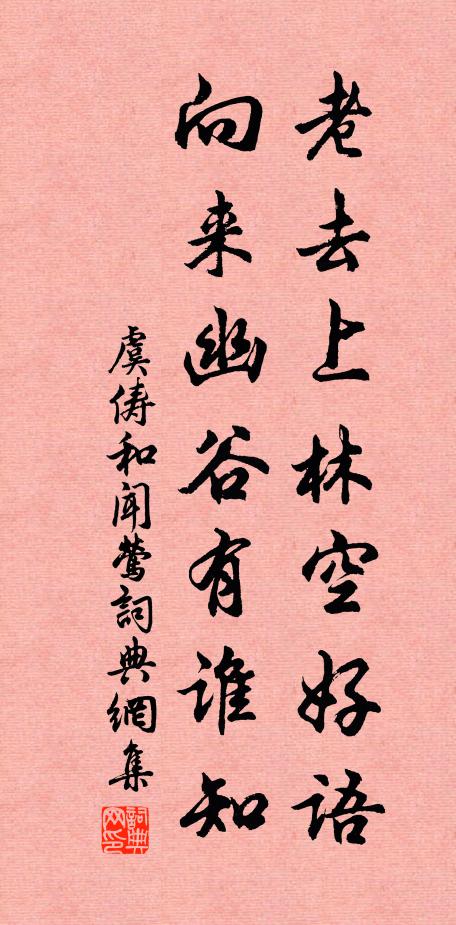 老去上林空好语
向来幽谷有谁知
虞俦和闻莺词典网集
词典网印